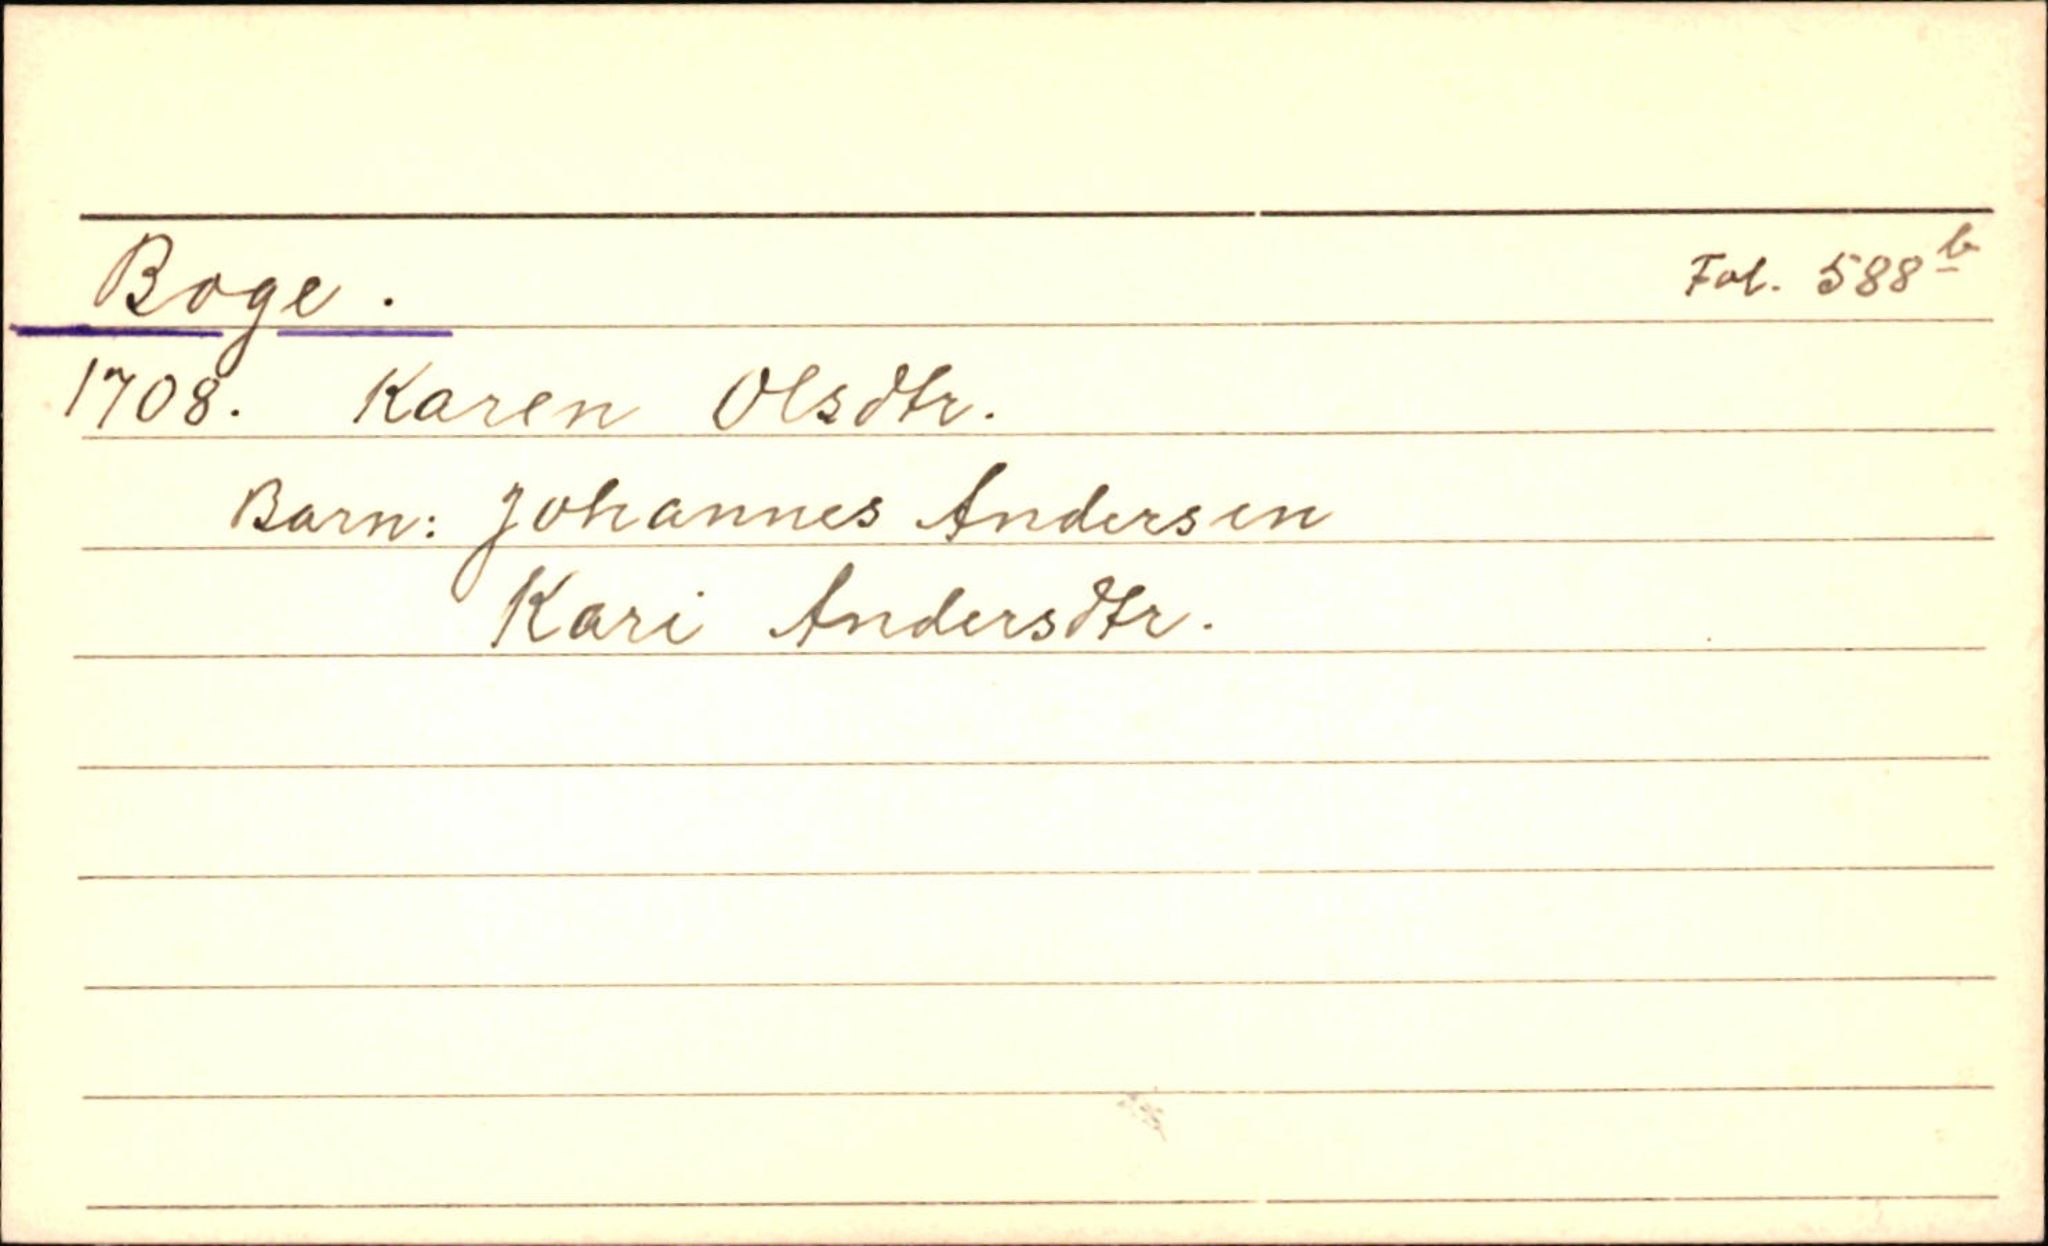 Boge. Fol. 588b
1708. Karen Olsdtr.
Barn: Johannes Andersen
Kari Andersdtr.